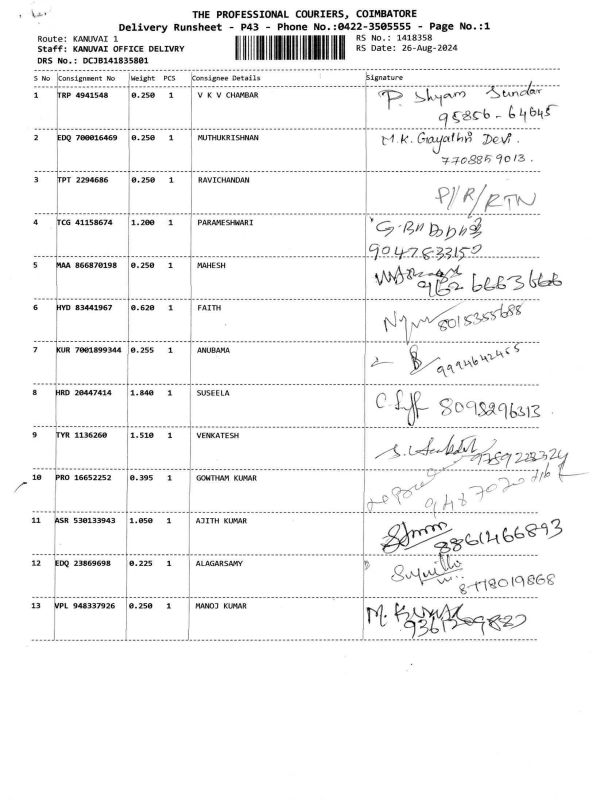 THE PROFESSIONAL COURIERS, COIMBATORE
Delivery Runsheet - P43 - Phone No.:0422-3505555 - Page No.:1
Route: KANUVAI 1 RS No.: 1418358
Staff: KANUVAI OFFICE DELIVRY RS Date: 26-Aug-2024
DRS No.: DCJB141835801
S No Consignment No Weight PCS Consignee Details Signature
1 TRP 4941548 0.250 1 V K V CHAMBAR P. Shyam Sundar
95856-64645
2 EDQ 700016469 0.250 1 MUTHUKRISHNAN M.K. Gayathri Devi.
7708859013.
3 TPT 2294686 0.250 1 RAVICHANDAN P/R/RTN
4 TCG 41158674 1.200 1 PARAMESHWARI
9047833150
5 MAA 866870198 0.250 1 MAHESH
6 HYD 83441967 0.620 1 FAITH 8015355688
7 KUR 7001899344 0.255 1 ANUBAMA 9994642455
8 HRD 20447414 1.840 1 SUSEELA 8098296313
9 TYR 1136260 1.510 1 VENKATESH 9789228324
10 PRO 16652252 0.395 1 GOWTHAM KUMAR
11 ASR 530133943 1.050 1 AJITH KUMAR 8861466893
12 EDQ 23869698 0.225 1 ALAGARSAMY
8778019868
13 VPL 948337926 0.250 1 MANOJ KUMAR M. Kumar